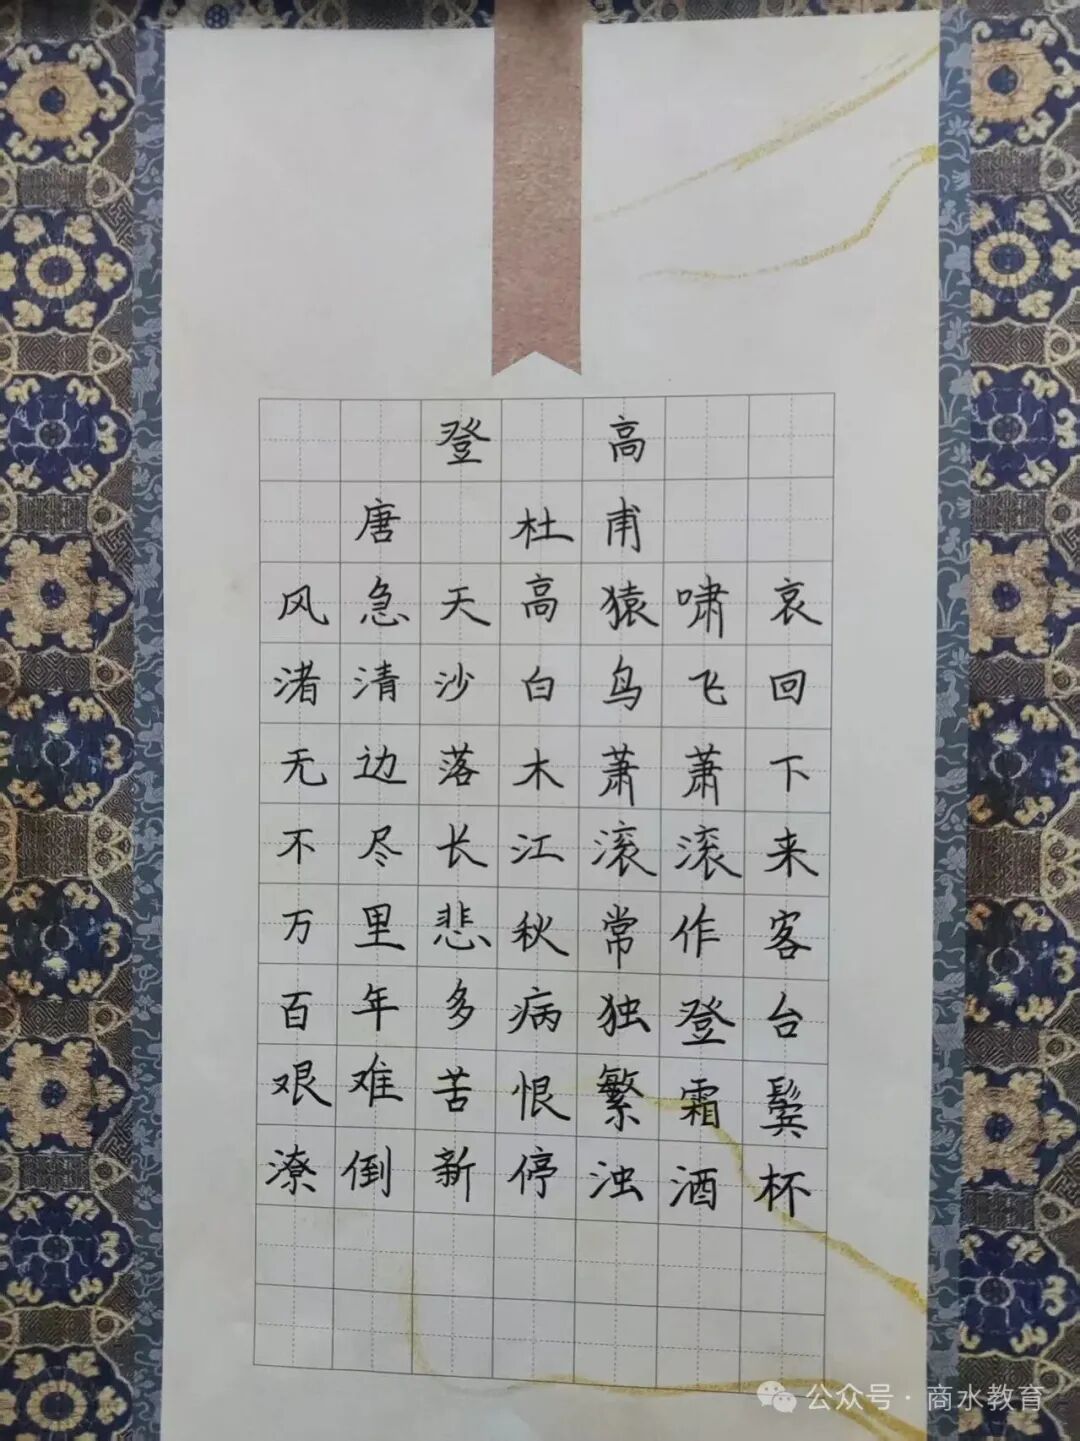 登高
唐 杜甫
风急天高猿啸哀
渚清沙白鸟飞回
无边落木萧萧下
不尽长江滚滚来
万里悲秋常作客
百年多病独登台
艰难苦恨繁霜鬓
潦倒新停浊酒杯
公众号·商水教育